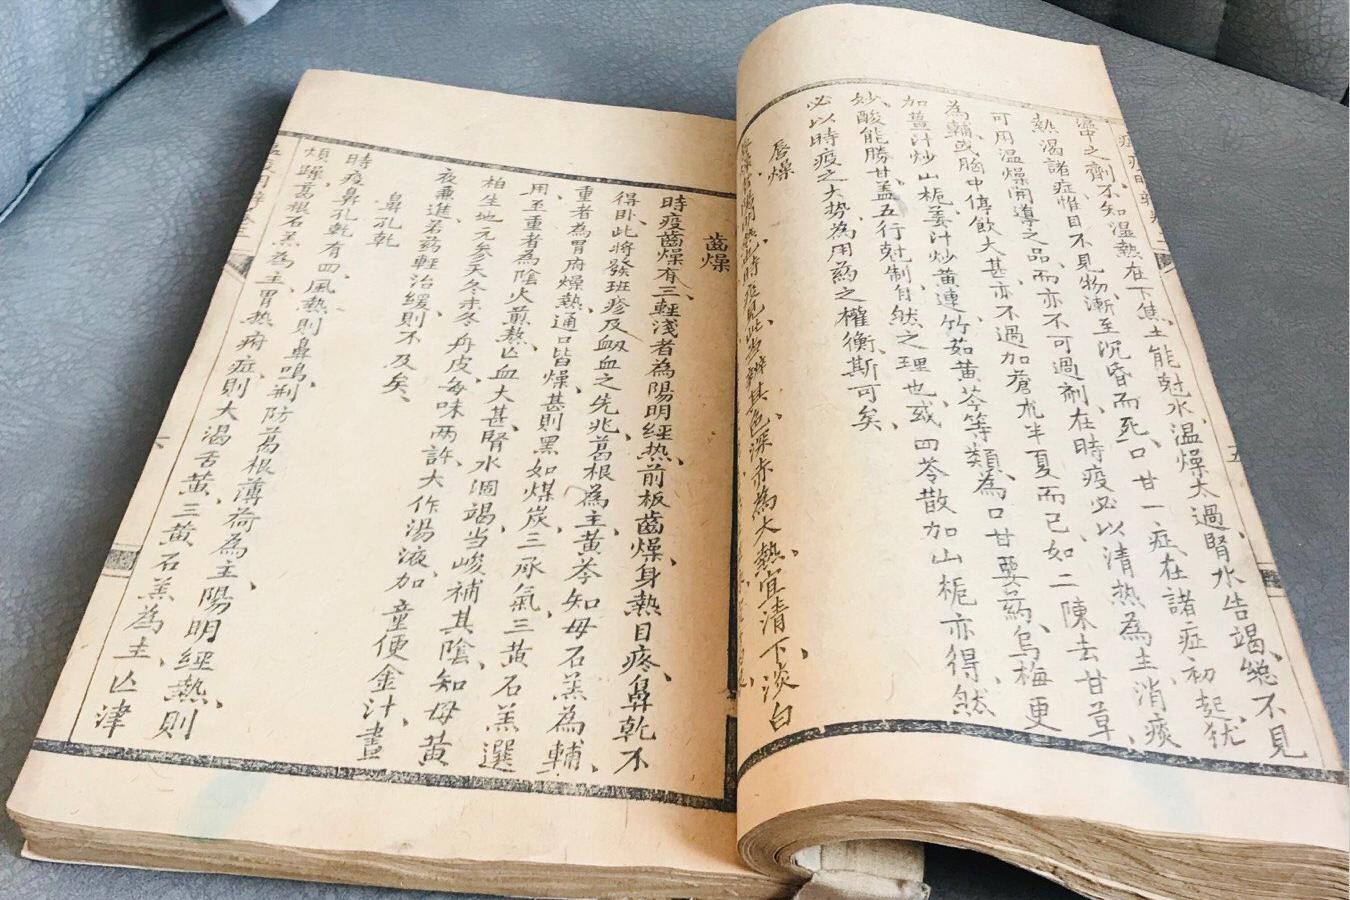 滯中之劑不知溫熱在下焦土能尅水溫燥太過腎水告竭絕不見
熱渴諸症惟目不見物漸至沉昏而死口甘一症在諸症初起犹
可用溫燥開導之品而亦不可過劑在時疫必以清熱為主消痰
為輔或胸中停飲大甚亦不過加蒼朮半夏而已如二陳去甘草
加薑汁炒山梔姜汁炒黃連竹茹黃芩等類為口甘要药烏梅更
妙酸能勝甘盖五行尅制自然之理也或四苓散加山梔亦得然
必以時疫之大势為用药之權衡斯可矣
唇燥
唇燥皆陽明熱時疫見此当辨其色深赤為大熱宜清下淡白
齒燥
時疫齒燥有三輕淺者為陽明經热前板齒燥身熱目疼鼻乾不
得卧此將發班疹及衂血之先兆葛根為主黃芩知母石羔為輔
重者為胃府燥熱通口皆燥甚則黑如煤炭三承氣三黃石羔選
用至重者為陰火煎熬亾血大甚腎水涸竭当峻補其陰知母黃
柏生地元參天冬麥冬丹皮每味兩許大作湯液加童便金汁晝
夜兼進若药輕治緩則不及矣
鼻孔乾
時疫鼻孔乾有四風熱則鼻鳴荆防葛根薄荷為主陽明經熱則
煩躁葛根石羔為主胃热府症則大渴舌黃三黃石羔為主亾津